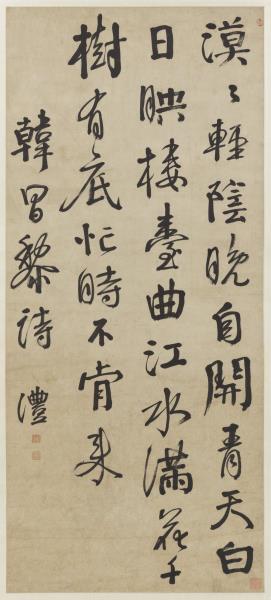 漠〻輕陰晚自開青天白
日暎樓臺曲江水滿花千
樹有底忙時不肯来
韓昌黎詩 澧